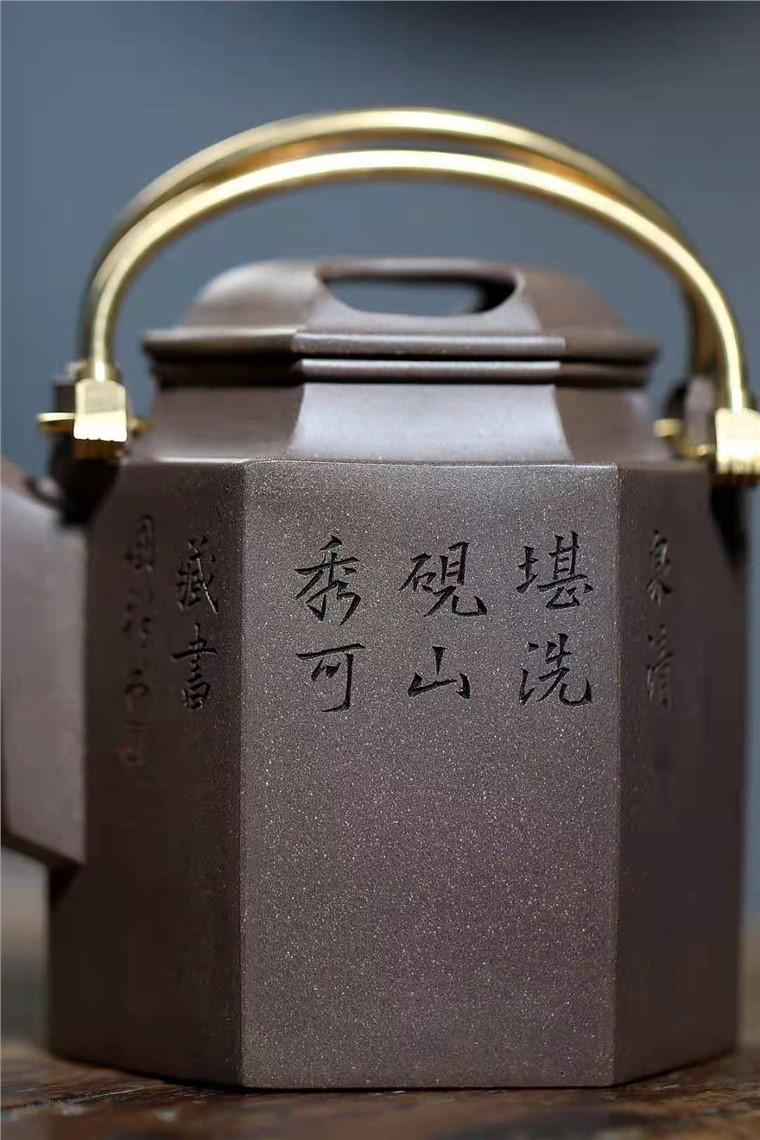 泉清
堪洗
硯山
秀可
藏書